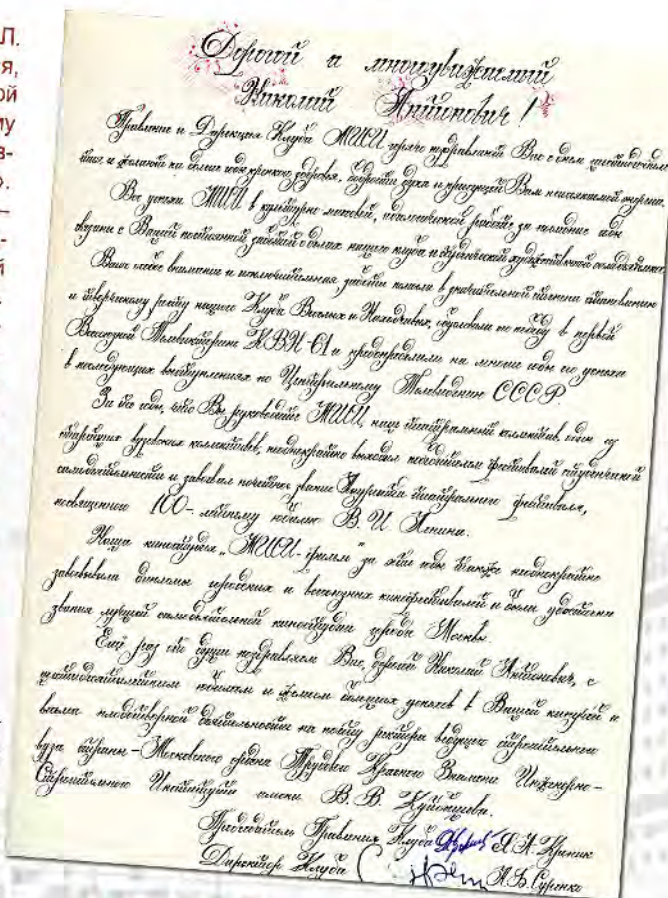 Л.
я,
ой
му
в-
Дорогой и многоуважаемый
Николай Антонович!
Правление и Дирекция Клуба МИСИ горячо поздравляют Вас с днем шестидесятилетия и желают на долгие годы крепкого здоровья, бодрости духа и присущей Вам неиссякаемой энергии.
Все успехи МИСИ в культурно-массовой, идеологической работе за последние годы
связаны с Вашей постоянной заботой о делах нашего клуба и студенческой художественной самодеятельности.
Ваше особое внимание и исключительная забота помогли в значительной степени становлению
и творческому росту нашего Клуба Веселых и Находчивых, обусловили его победу в первой
Всесоюзной Телевикторине КВН-61 и предопределили на многие годы его успехи
в последующих выступлениях по Центральному Телевидению СССР.
За те годы, что Вы руководите МИСИ, наш театральный коллектив, один из
старейших вузовских коллективов, неоднократно выходил победителем фестивалей студенческой
самодеятельности и завоевал почетное звание Лауреата театрального фестиваля,
посвященного 100-летнему юбилею В. И. Ленина.
Наша киностудия „МИСИ-фильм" за эти годы также неоднократно
завоевывала дипломы городских и всесоюзных кинофестивалей и была удостоена
звания лучшей самодеятельной киностудии города Москвы.
Ещё раз от души поздравляем Вас, дорогой Николай Антонович, с
шестидесятилетним юбилеем и желаем больших успехов в Вашей кипучей и
весьма плодотворной деятельности на посту ректора ведущего строительного
вуза страны – Московского ордена Трудового Красного Знамени Инженерно-
Строительного Института имени В. В. Куйбышева.
Председатель Правления Клуба
Директор Клуба